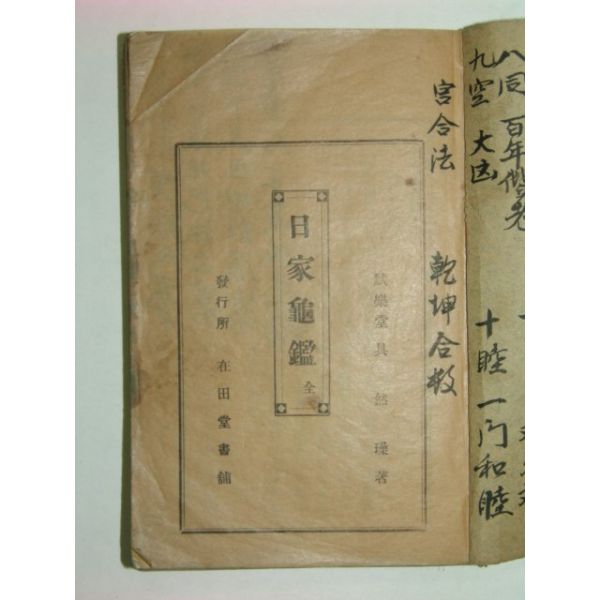 八同 百年偕老
九空 大凶
十睦 一門和睦
宮合法 乾坤合数
堂具然璪著
日家龜鑑 全
發行所 在田堂書舖